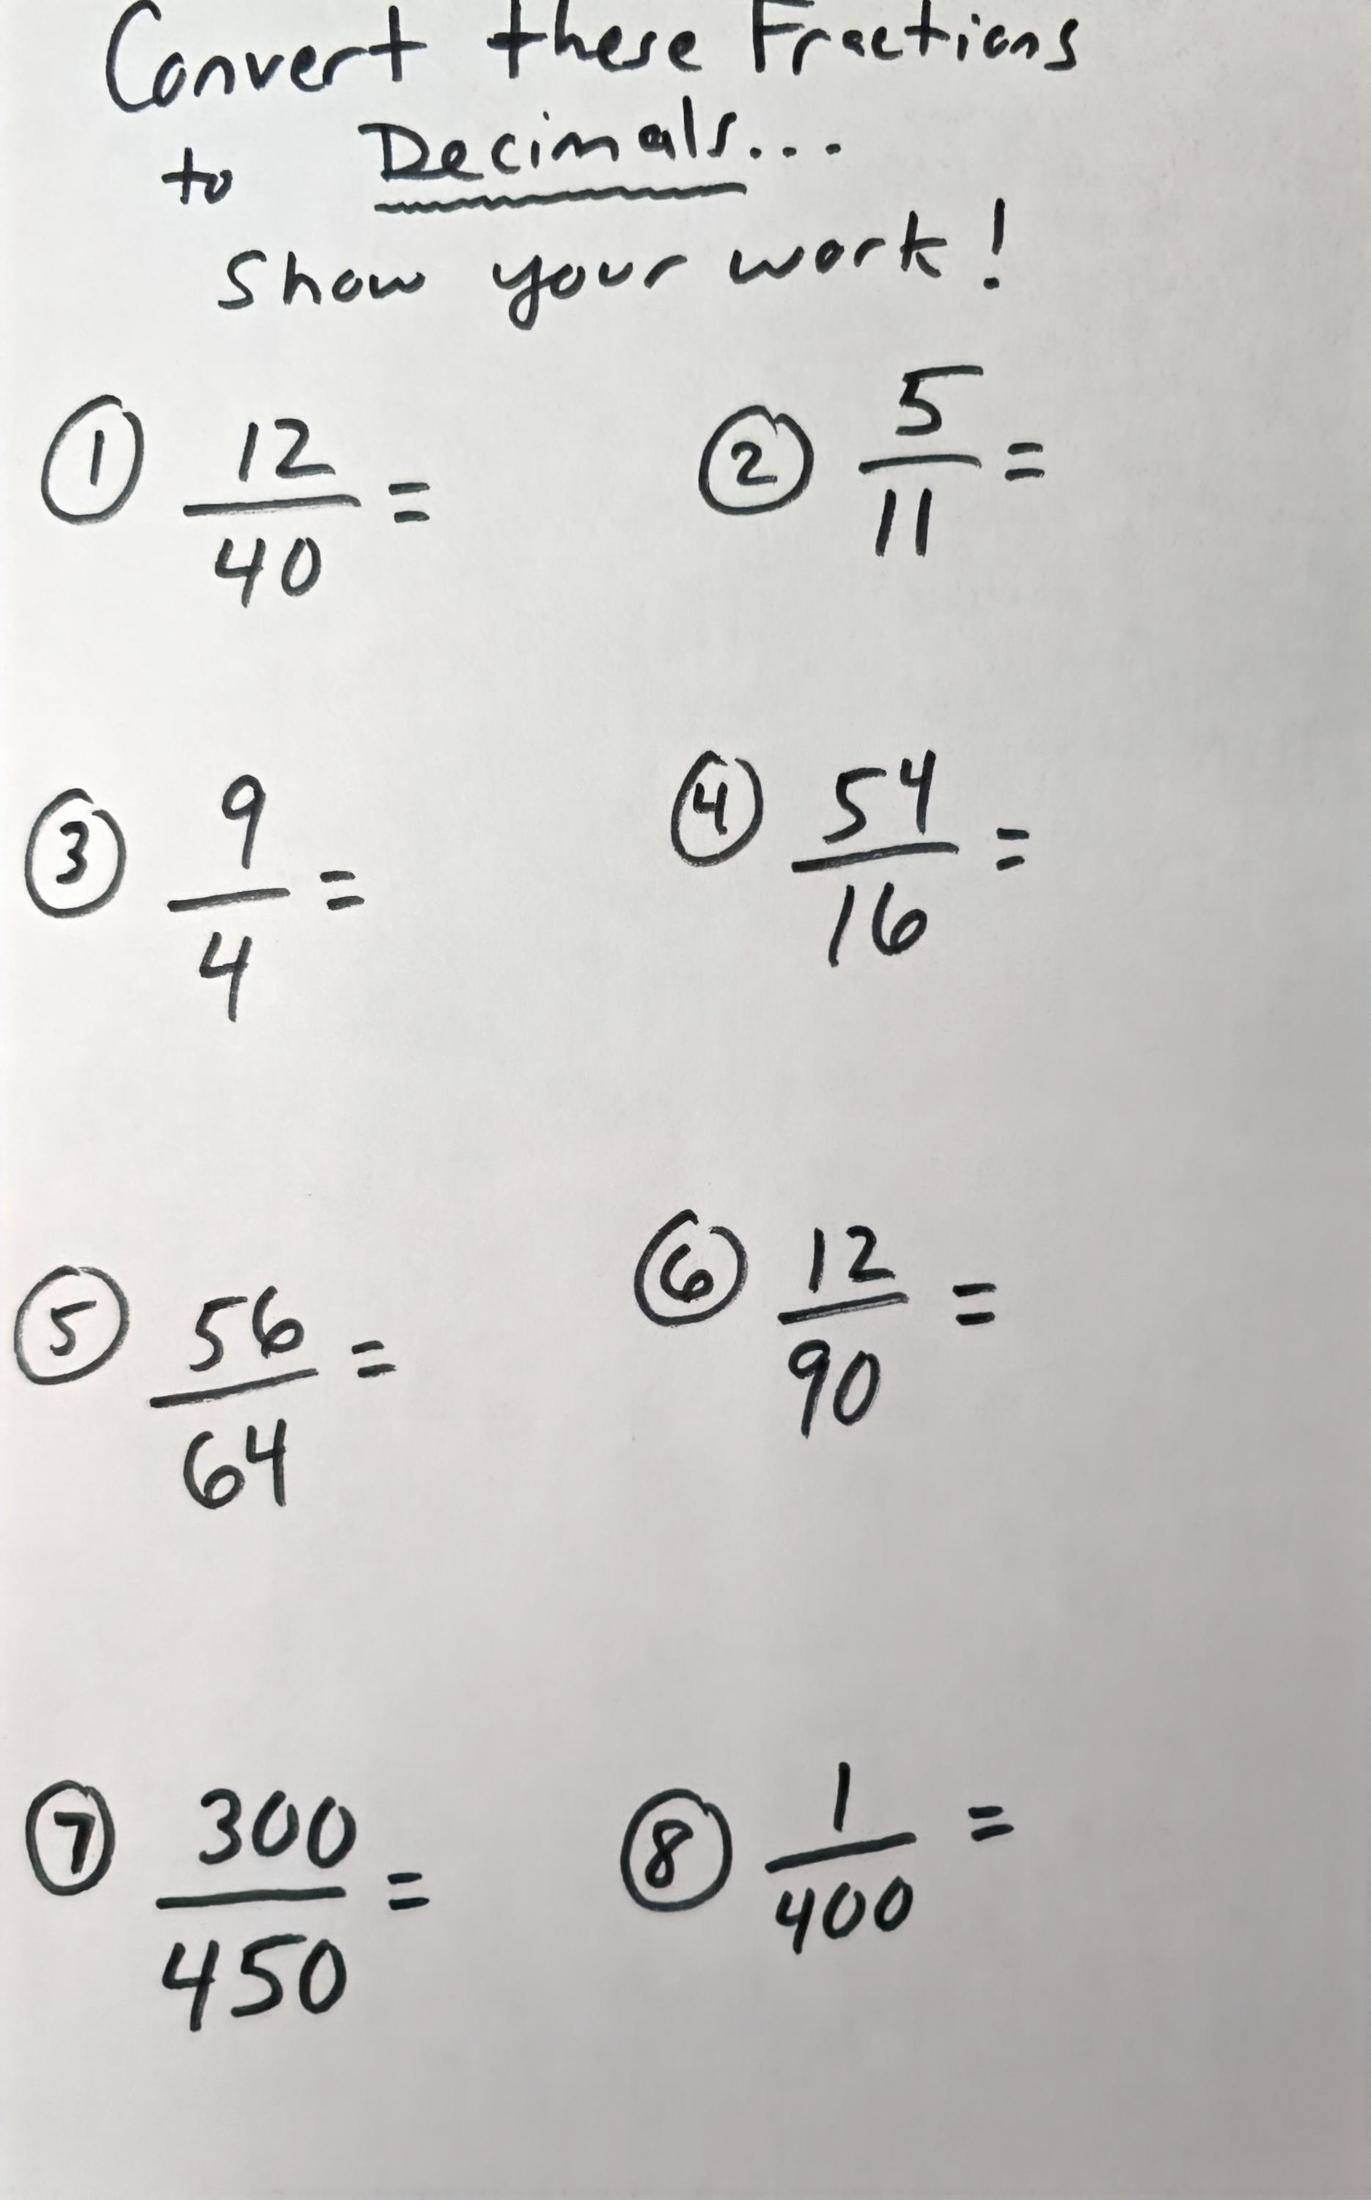 Convert these Fractions
to Decimals...
show your work!
① 12/40 =
② 5/11 =
③ 9/4 =
④ 54/16 =
⑤ 56/64 =
⑥ 12/90 =
⑦ 300/450 =
⑧ 1/400 =